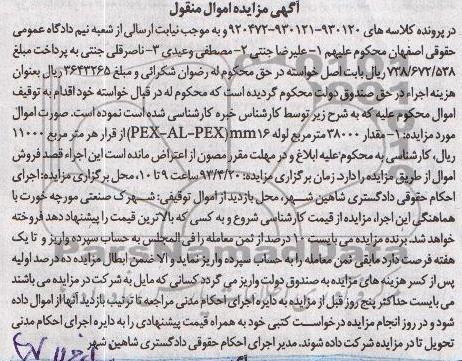 آگهی مزایده اموال منقول
در پرونده کلاسه های ۹۳۰۱۲۰-۹۳۰۱۲۱-۹۲۰۴۷۲ و به موجب نیابت ارسالی از شعبه نیم دادگاه عمومی
حقوقی اصفهان محکوم علیهم ۱-علیرضا جنتی ۲-مصطفی وعیدی ۳-ناصرقلی جنتی به پرداخت مبلغ
۷۳۸/۶۷۲/۵۳۸ ریال بابت اصل خواسته در حق محکوم له رضوان شکرائی و مبلغ ۳۶۴۳۲۶۵ ریال بعنوان
هزینه اجرا در حق صندوق دولت محکوم گردیده است که محکوم له در قبال خواسته خود اقدام به توقیف
اموال محکوم علیه که به شرح زیر توسط کارشناس خبره کارشناسی شده است نموده است. صورت اموال
مورد مزایده: ۱-مقدار ۳۸۰۰۰ متر مربع لوله ۱۶ mm(PEX-AL-PEX) از قرار هر متر مربع ۱۱۰۰۰
ریال، کارشناسی به محکوم علیه ابلاغ و در مهلت مقرر مصون از اعتراض مانده است این اجراء قصد فروش
اموال از طریق مزایده را دارد. زمان برگزاری مزایده: ۹۴/۴/۲۰ ساعت ۹ تا ۱۰، محل برگزاری مزایده: اجرای
احکام حقوقی دادگستری شاهین شهر، محل بازدید از اموال توقیفی: شهرک صنعتی مورچه خورت با
هماهنگی این اجراء، مزایده از قیمت کارشناسی شروع و به کسی که بالاترین قیمت را پیشنهاد دهد فروخته
خواهد شد. برنده مزایده می بایست ۱۰ درصد از ثمن معامله را فی المجلس به حساب سپرده واریز و تا یک
هفته فرصت دارد مابقی ثمن معامله را به حساب سپرده واریز نماید و الا ضمن ابطال مزایده ده درصد اولیه
پس از کسر هزینه های مزایده به صندوق دولت واریز می گردد کسانی که مایل به شرکت در مزایده می باشند
می بایست حداکثر پنج روز قبل از مزایده به دایره اجرای احکام مدنی مراجعه تا ترتیب بازدید آنها از اموال داده
شود و در روز انجام مزایده درخواست کتبی خود به همراه قیمت پیشنهادی را به دایره اجرای احکام مدنی
تحویل تا در مزایده شرکت داده شوند. مدیر اجرای احکام حقوقی دادگستری شاهین شهر